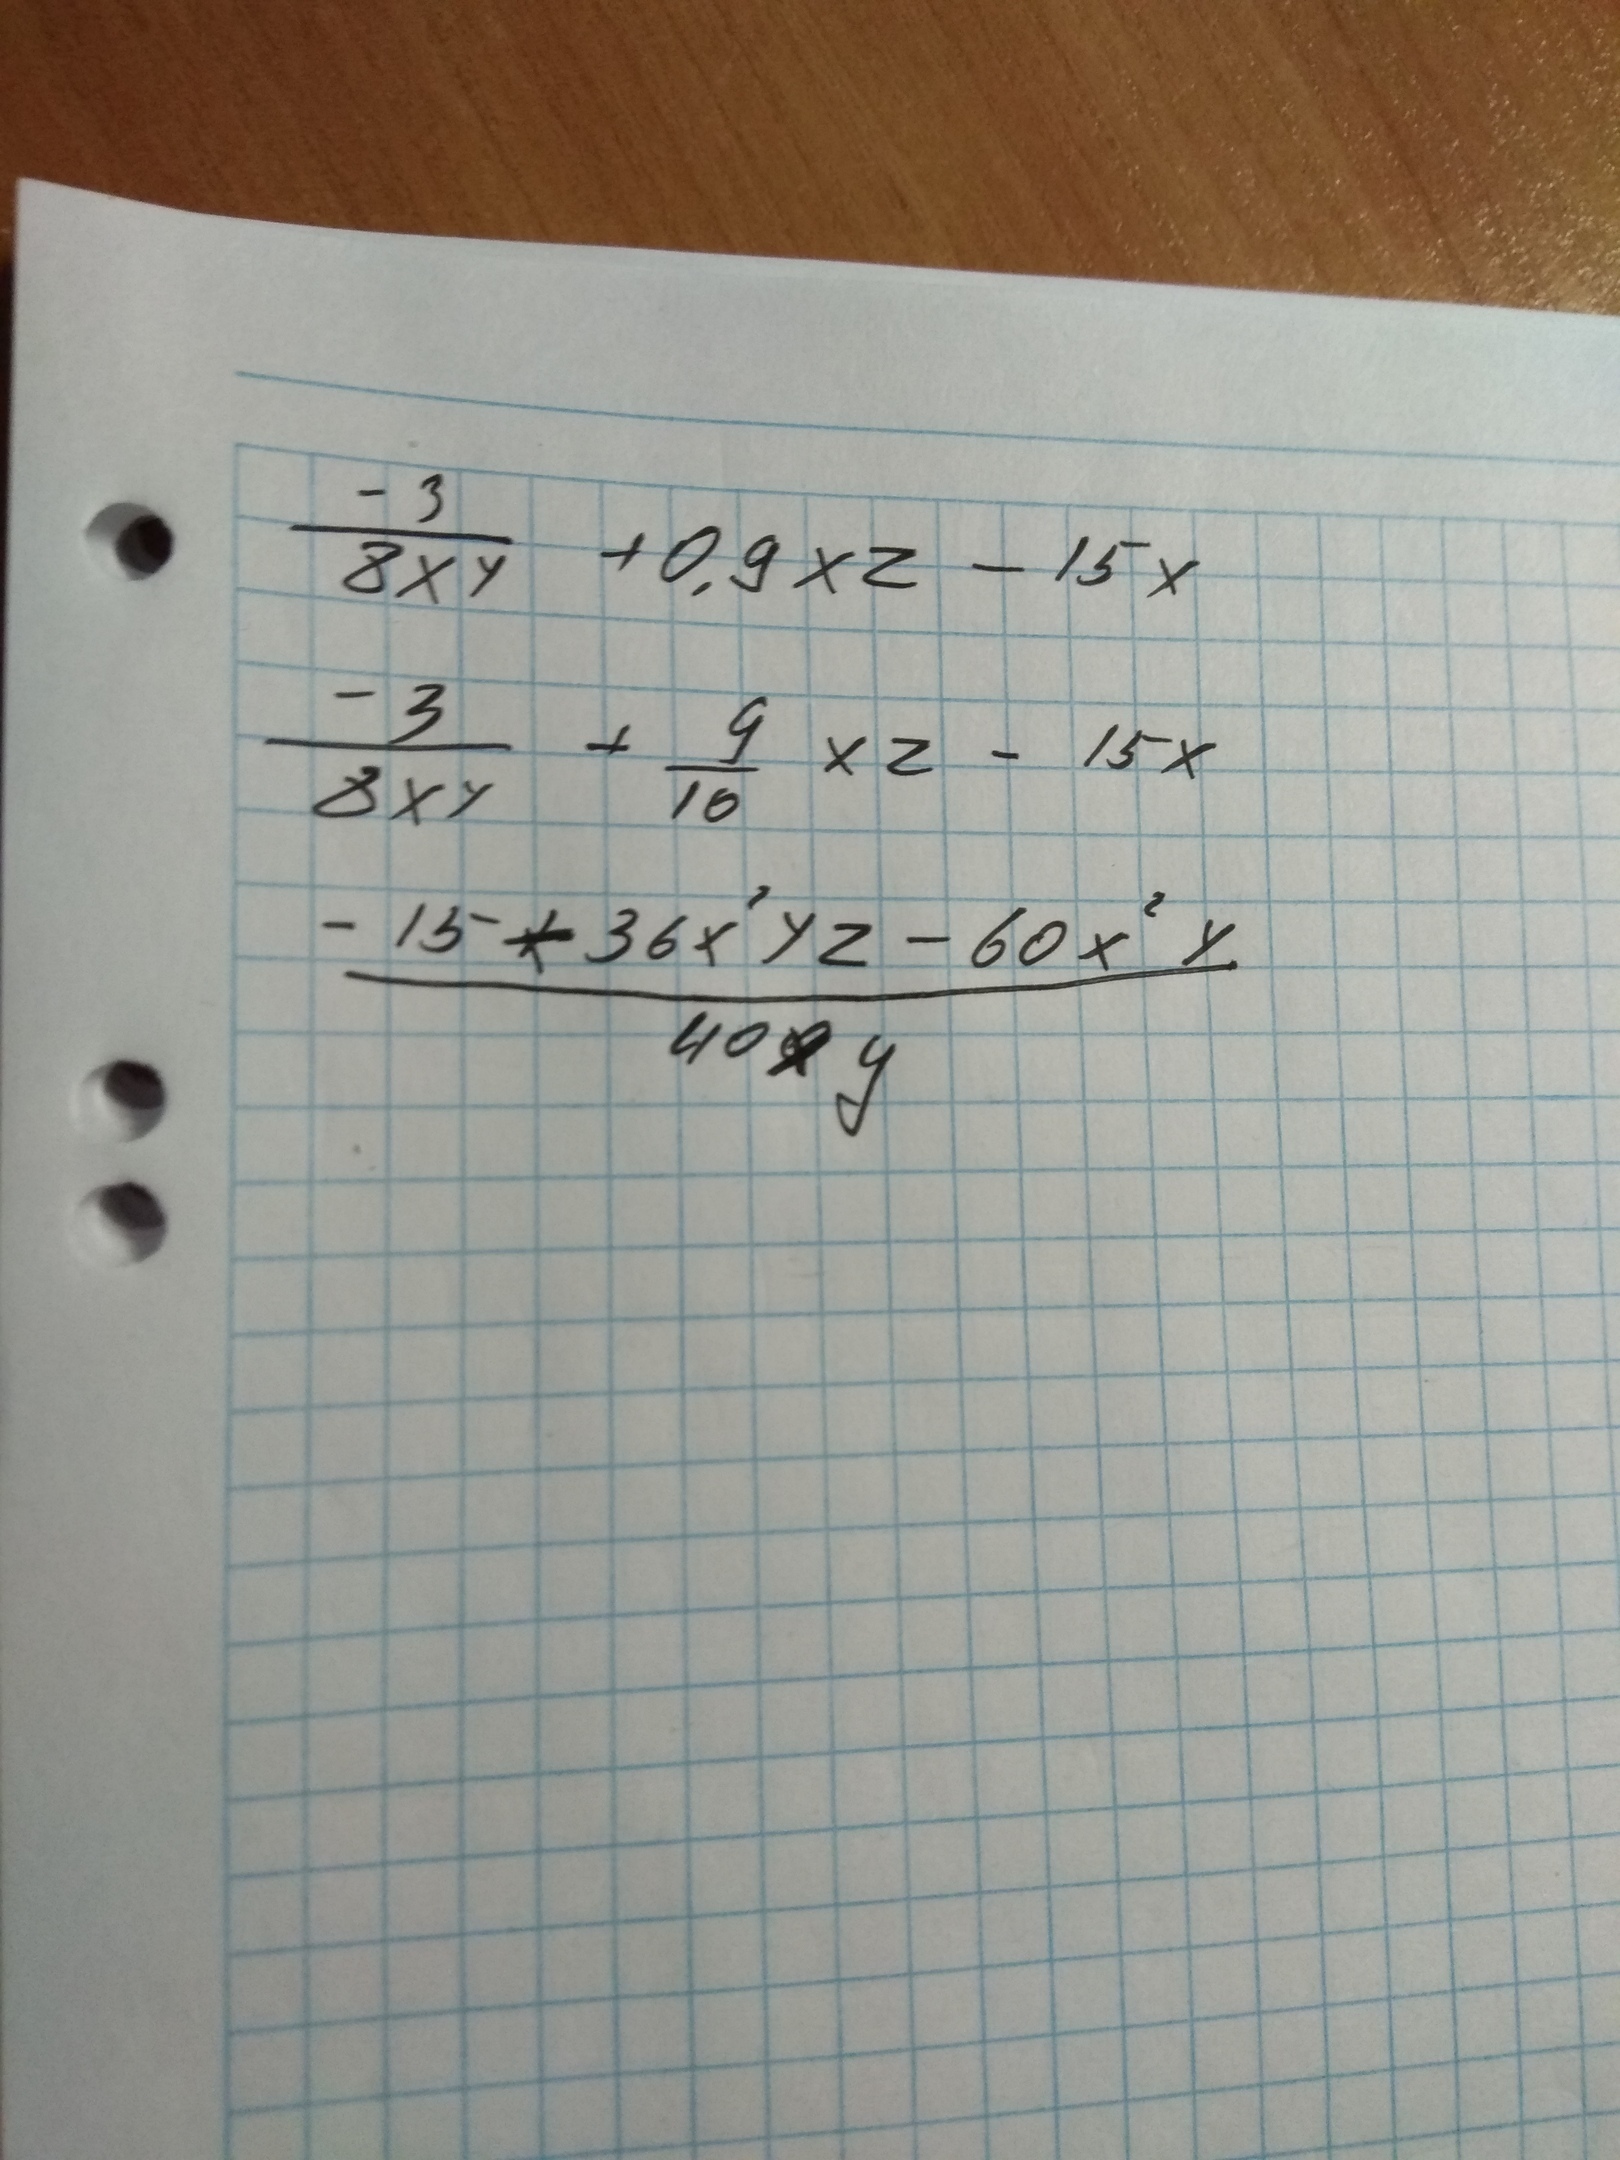 -3/8xy + 0,9xz - 15x
-3/8xy + 9/10 xz - 15x
(-15 + 36x²yz - 60x²y)/40xy